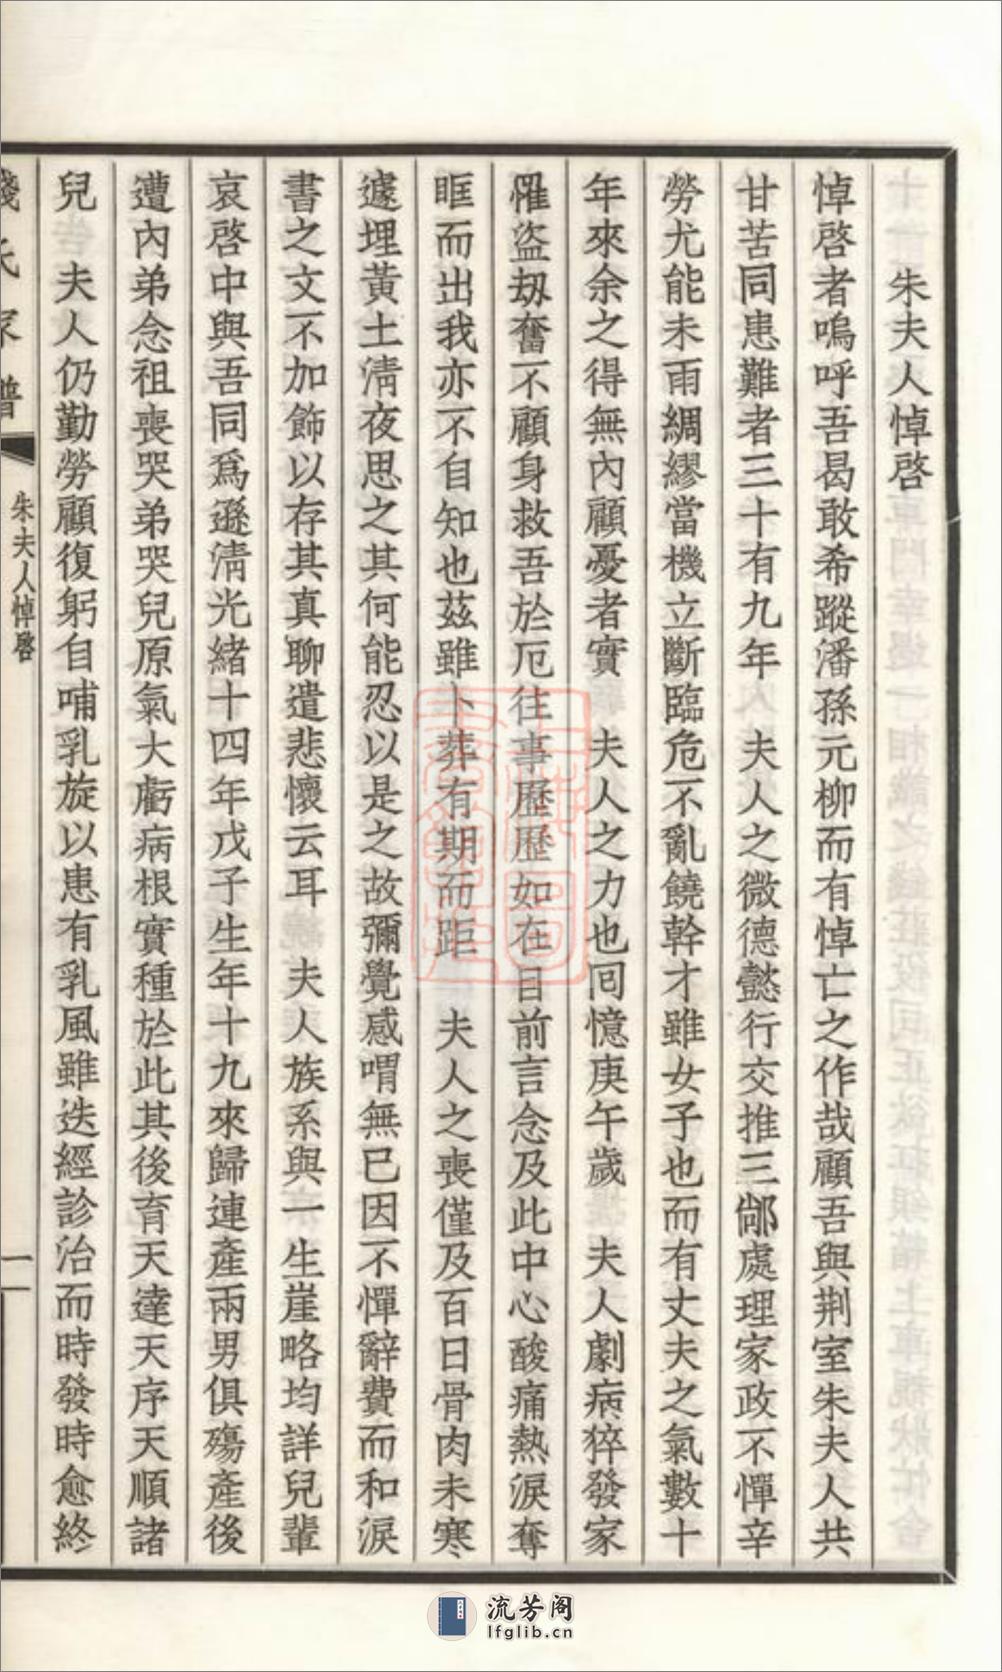 朱夫人悼啓
悼啓者嗚呼吾曷敢希蹤潘孫元柳而有悼亡之作哉顧吾與荆室朱夫人共
甘苦同患難者三十有九年 夫人之微德懿行交推三郸處理家政不憚辛
勞尤能未雨綢繆當機立斷臨危不亂饒幹才雖女子也而有丈夫之氣數十
年來余之得無內顧憂者實 夫人之力也回憶庚午歲 夫人劇病猝發家
罹盜刼奮不顧身救吾於厄往事歷歷如在目前言念及此中心酸痛熱淚奪
眶而出我亦不自知也茲雖卜葬有期而距 夫人之喪僅及百日骨肉未寒
遽埋黃土清夜思之其何能忍以是之故彌覺感喟無已因不憚辭費而和淚
書之文不加飾以存其真聊遣悲懷云耳 夫人族系與一生崖略均詳兒輩
哀啓中與吾同為遜清光緒十四年戊子生年十九來歸連產兩男俱殤產後
遭內弟念祖喪哭弟哭兒原氣大虧病根實種於此其後育天達天序天順諸
兒 夫人仍勤勞顧復躬自哺乳旋以患有乳風雖迭經診治而時發時愈終
錢氏家譜
朱夫人悼啓
一
流芳阁
lfglib.cn